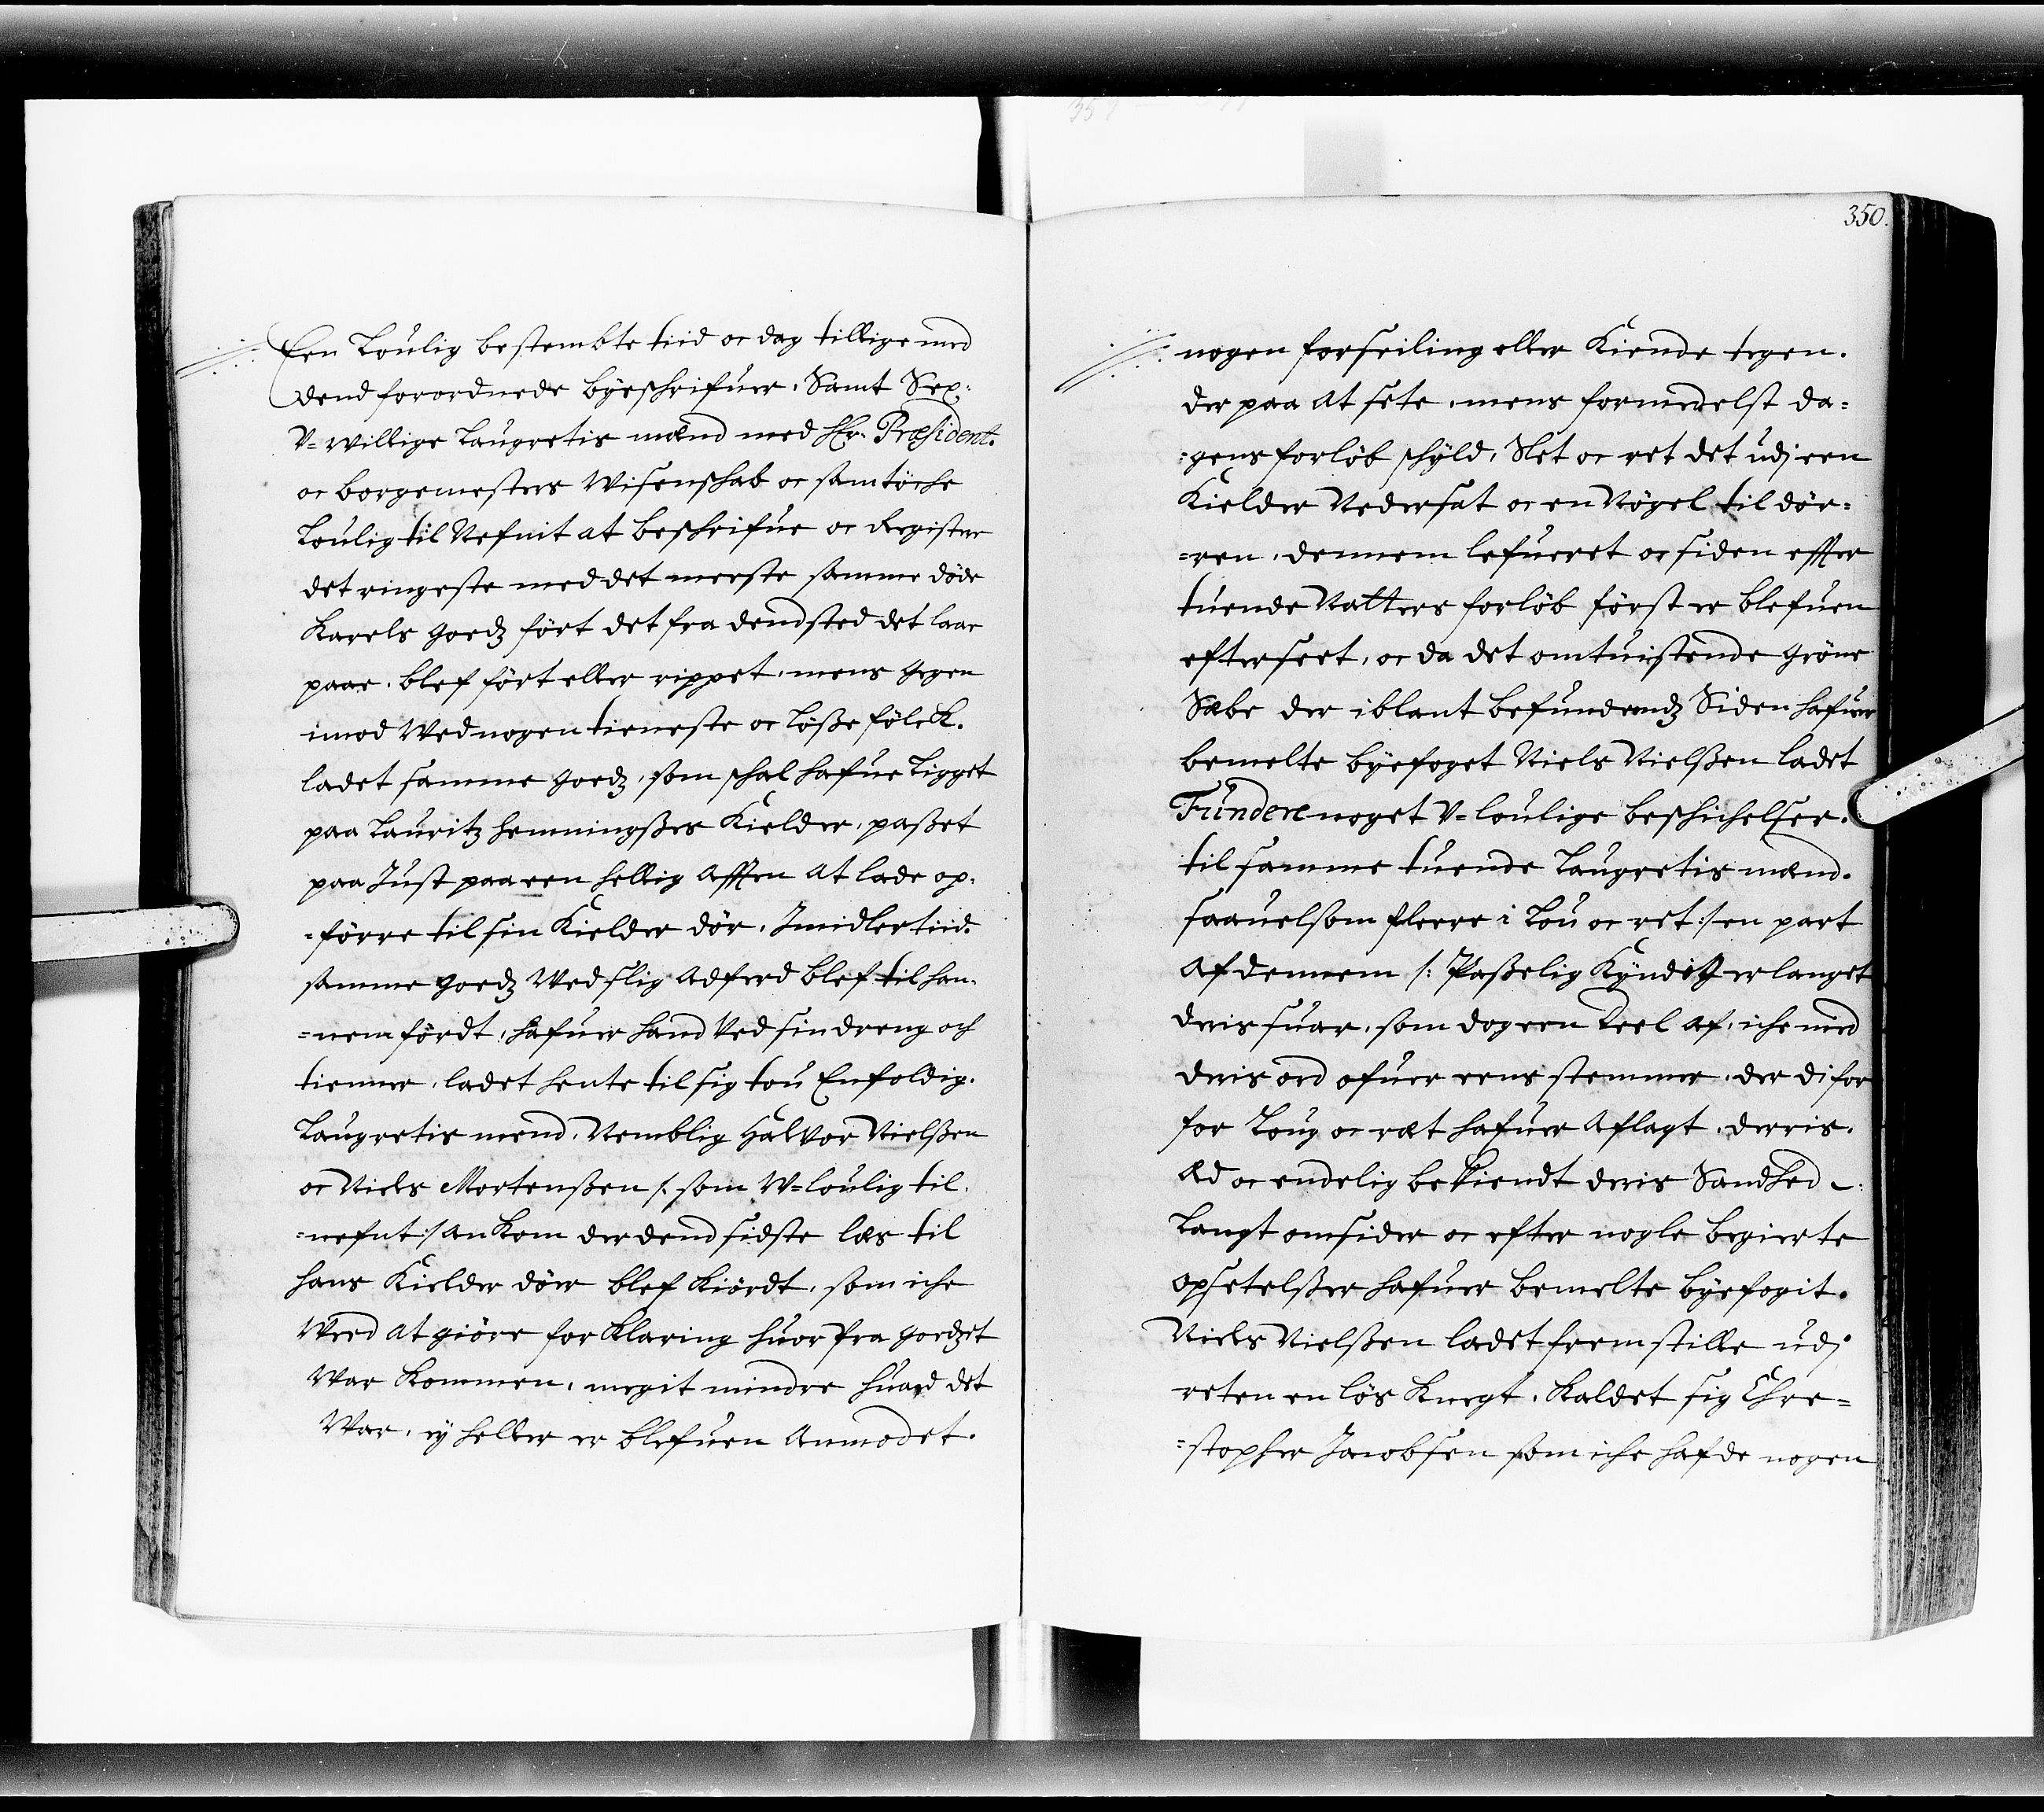 Een Loulig bestembte tiid oc dag tillige med
dend forordnede byeschrifuer, Samt Sex,
V=willige Laugretis mænd med Hr. Præsident.
oc borgemesters Wisenschab oc samtöche
Loulig til Nefnit at beschrifue oc Registere
det ringeste med det meeste samme döde
Karels goedz fört det fra dend sted det laae
paae, blef fört eller rippet, mens gegen
imod Wed nogen tieneste oc lösse fölck.
ladet samme goedz, som schal hafue Ligget
paa Lauritz Hemningsßes Kielder, passet
paa Just paa een hellig afften at lade op,
=förre til sin Kielder dör, Imidlertiid.
samme goedz Wed slig adferd blef til han,
=nem fördt, hafuer hand Ved sin dreng och
tienner, ladet hente til sig tou Enfoldig.
Laugretis mend, Nemblig Halvor Nielßen
oc Niels Mortenßen /: som W=loulig til,
=nefnt :/ ankom der dend sidste læs til
hans Kielder döer blef kiördt, som iche
Weed at giöre forklaring huor fra goedzet
War kommen, megit mindre huad det
War, ey heller er blefuen Anmodet.

350.
nogen forseiling eller Kiende tegen.
der paa at sete, mens formedelst da=
=gens forlöb schyld, Slet oc ret det udj een
Kielder Nedersat oc en Nögel til dör=
=ren, dennem lefueret oc siden effter
tuende Natters forlöb först er blefuen
efterseet, oc da det omtuistende gröne
Sæbe der iblant befundendz Siden hafuer
bemelte byefoget Niels Nielßen ladet
Fundere noget V=loulige beschichelser.
til samme tuende Laugretis mænd.
saauelsom fleere i Lou oc ret :/ en part
af dennem /: Passelig Kyndig erlanget
deris suar, som dog een deel af, iche med
deris ord ofuer eens stemmer, der di for
for Loug oc ræt hafuer aflagt, derris,
Æd oc endelig bekiendt deris Sandhed
Langt omsider oc efter nogle begierte
opsetelßer hafuer bemelte byefogit.
Niels Nielßen ladet fremstille udj
reten en lös Knegt, kaldet sig Chre=
=stopher Jacobsen som iche hafde nogen